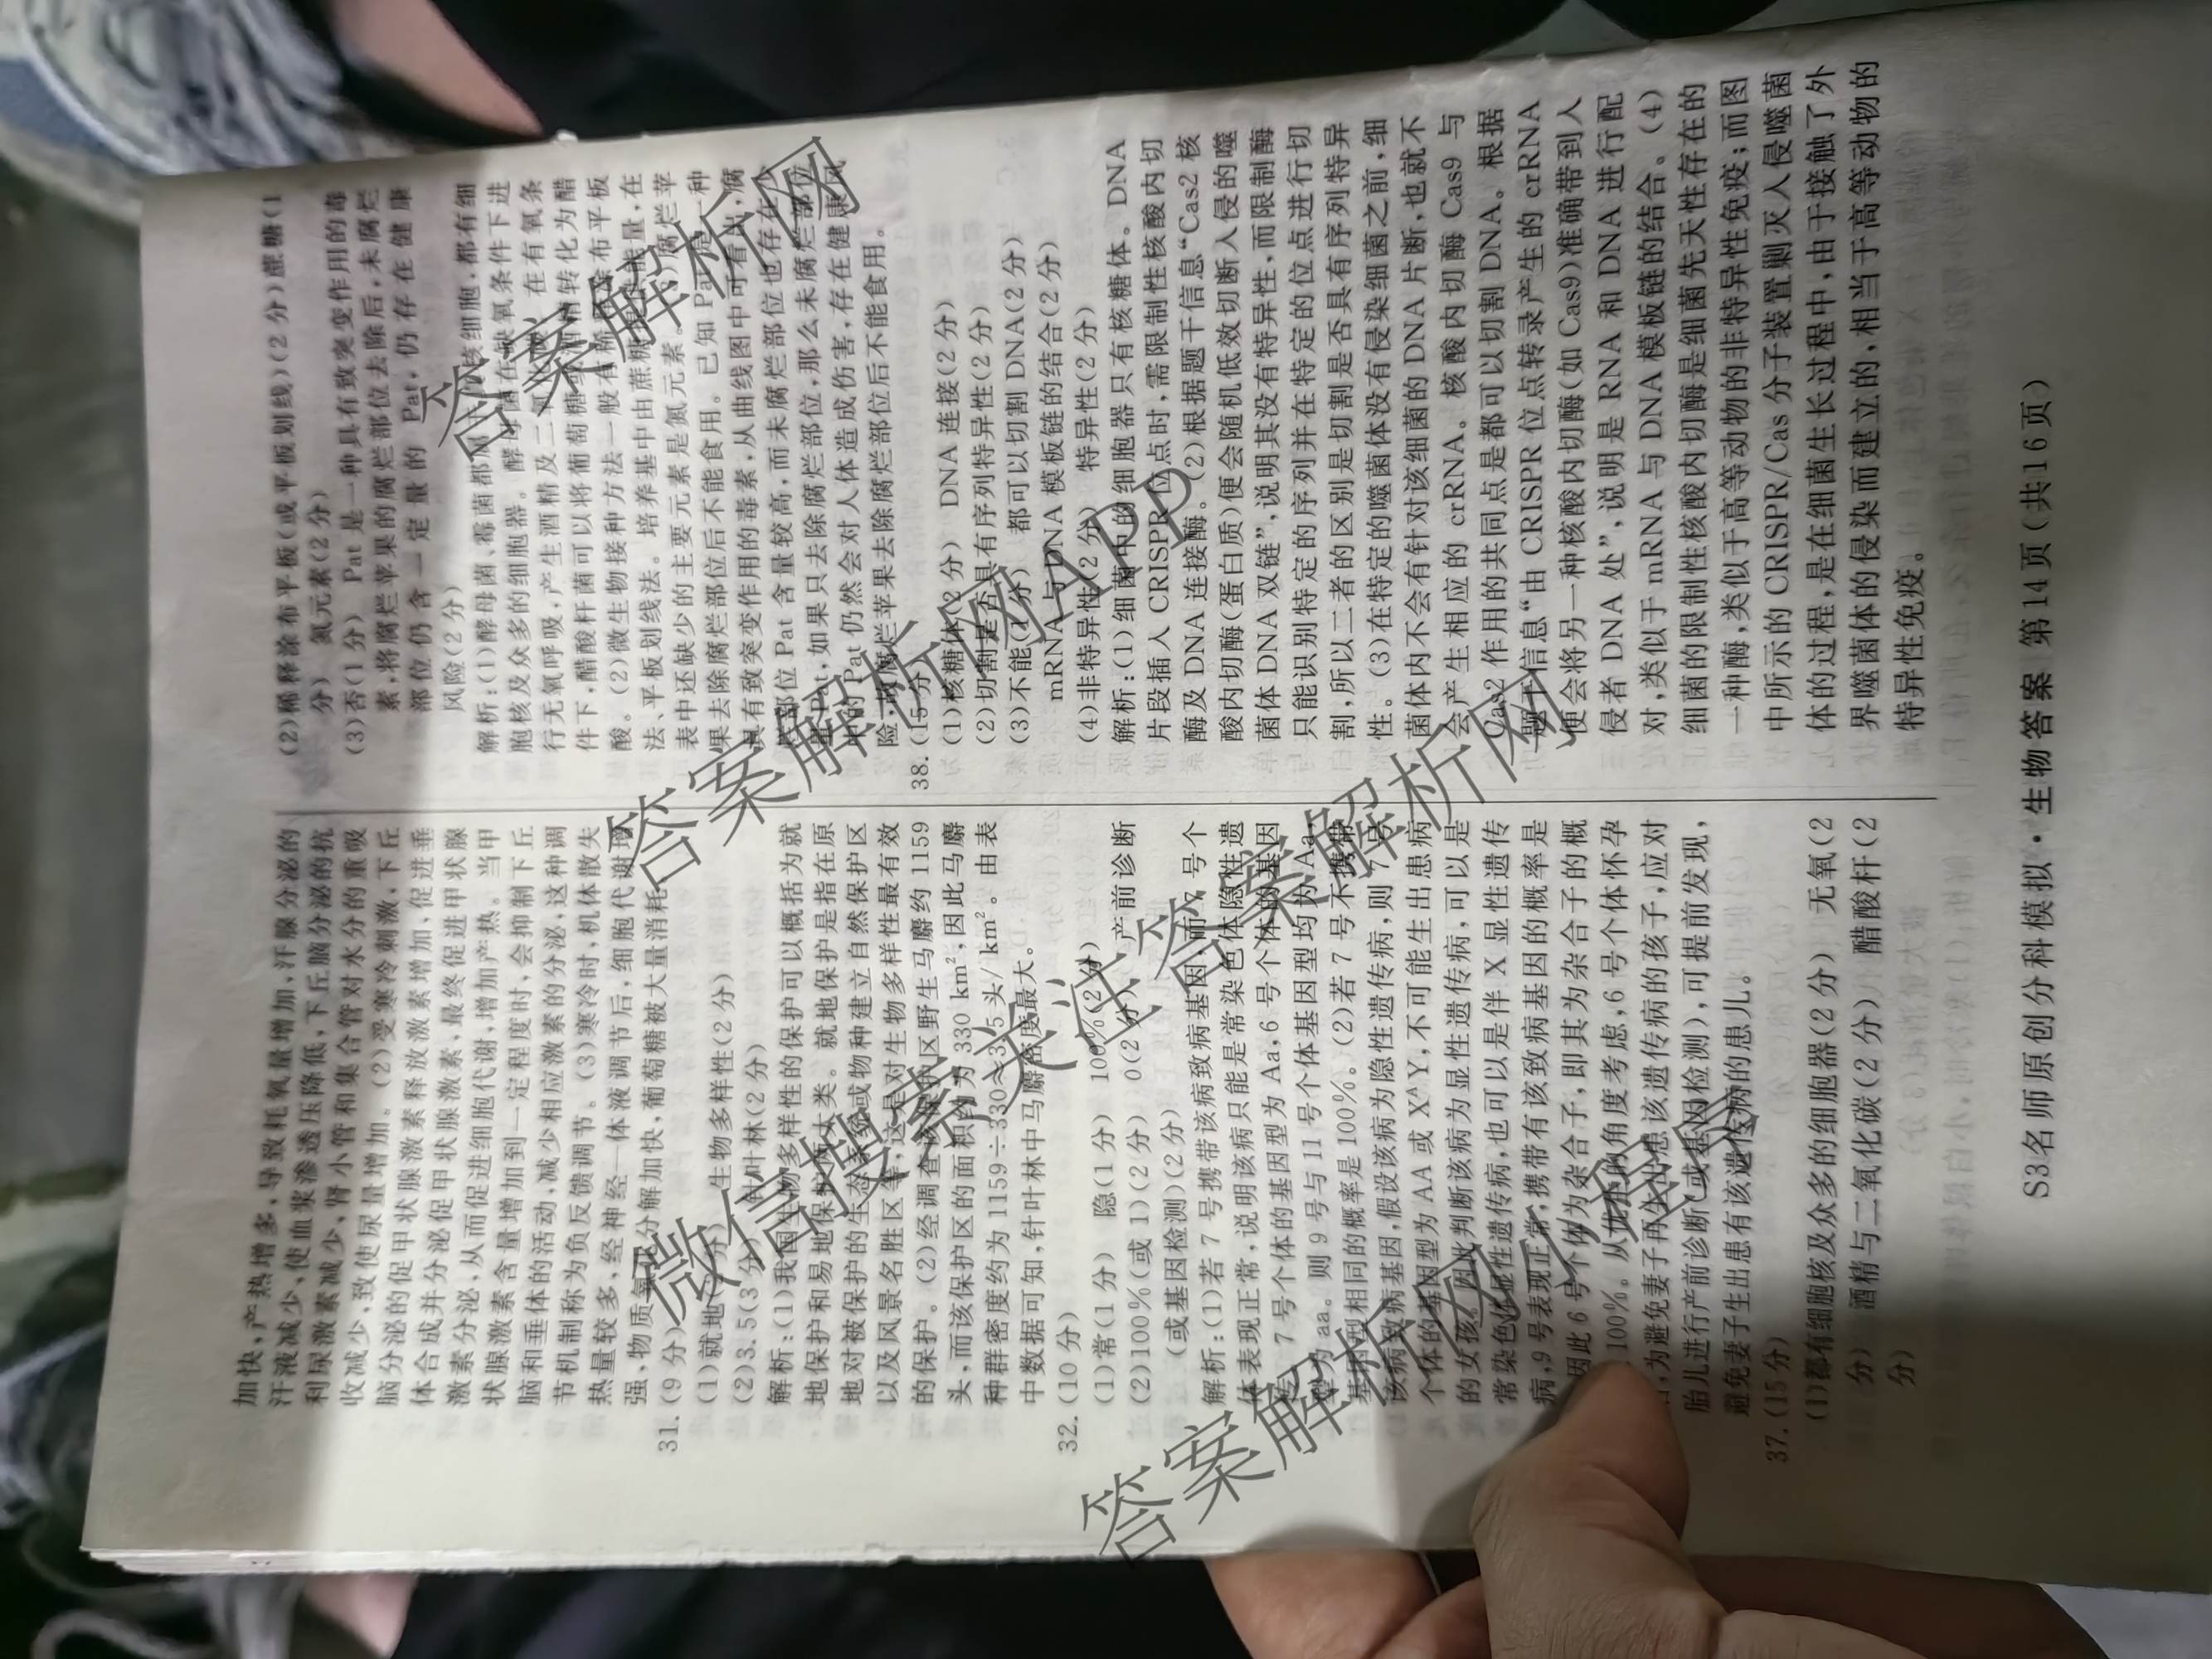 加快,产热增多,导致耗氧量增加,汗腺分泌的
汗液减少,使血浆渗透压降低,下丘脑分泌的抗
利尿激素减少,肾小管和集合管对水分的重吸
收减少,致使尿量增加。(2)受寒冷刺激,下丘
脑分泌的促甲状腺激素释放激素增加,促进垂
体合成并分泌促甲状腺激素,最终促进甲状腺
激素分泌,从而促进细胞代谢,增加产热。当甲
状腺激素含量增加到一定程度时,会抑制下丘
脑和垂体的活动,减少相应激素的分泌,这种调
节机制称为负反馈调节。(3)寒冷时,机体散失
热量较多,经神经—体液调节后,细胞代谢增
强,物质氧化分解加快,葡萄糖被大量消耗。
31.(9分)
(1)就地(2分) 生物多样性(2分)
(2)3.5(3分) 针叶林(2分)
解析:(1)我国生物多样性的保护可以概括为就
地保护和易地保护两大类。就地保护是指在原
地对被保护的生态系统或物种建立自然保护区
以及风景名胜区等,这是对生物多样性最有效
的保护。(2)经调查该保护区野生马麝约1159
头,而该保护区的面积约为330 km²,因此马麝
种群密度约为1159÷330≈3.5头/km²。由表
中数据可知,针叶林中马麝密度最大。
32.(10分)
(1)常(1分) 隐(1分) 100%(2分)
(2)100%(或1)(2分) 0(2分) 产前诊断
(或基因检测)(2分)
解析:(1)若7号携带该病致病基因,而7号个
体表现正常,说明该病只能是常染色体隐性遗
传,7号个体的基因型为Aa,6号个体的基因
型为aa。则9号与11号个体基因型均为Aa,
基因型相同的概率是100%。(2)若7号不携带
该病致病基因,假设该病为隐性遗传病,则7号
个体的基因型为AA或XᴬY,不可能生出患病
的女孩。因此判断该病为显性遗传病,可以是
常染色体显性遗传病,也可以是伴X显性遗传
病,9号表现正常,携带有该致病基因的概率是
因此6号个体为杂合子,即其为杂合子的概
100%。从优生的角度考虑,6号个体怀孕
,为避免妻子再生出患该遗传病的孩子,应对
胎儿进行产前诊断(或基因检测),可提前发现,
避免妻子生出患有该遗传病的患儿。
37.(15分)
(1)都有细胞核及众多的细胞器(2分) 无氧(2
分) 酒精与二氧化碳(2分) 醋酸杆(2
分)
(2)稀释涂布平板(或平板划线)(2分)蔗糖(1
分) 氮元素(2分)
(3)否(1分) Pat是一种具有致突变作用的毒
素,将腐烂苹果的腐烂部位去除后,未腐烂
部位仍含一定量的Pat,仍存在健康
风险(2分)
解析:(1)酵母菌、霉菌都属于真核细胞,都有细
胞核及众多的细胞器。酵母菌在缺氧条件下进
行无氧呼吸,产生酒精及二氧化碳。在有氧条
件下,醋酸杆菌可以将葡萄糖或酒精转化为醋
酸。(2)微生物接种方法一般有稀释涂布平板
法、平板划线法。培养基中由蔗糖提供能量,在
表中还缺少的主要元素是氮元素。(3)腐烂苹
果去除腐烂部位后不能食用。已知Pat是一种
具有致突变作用的毒素,从曲线图中可看出,腐
烂部位Pat含量较高,而未腐烂部位也存在少
量Pat,如果只去除腐烂部位,那么未腐烂部位
中的Pat仍然会对人体造成伤害,存在健康风
险,故腐烂苹果去除腐烂部位后不能食用。
38.(15分)
(1)核糖体(2分) DNA连接(2分)
(2)切割是否具有序列特异性(2分)
(3)不能(1分) 都可以切割DNA(2分)
mRNA与DNA模板链的结合(2分)
(4)非特异性(2分) 特异性(2分)
解析:(1)细菌中的细胞器只有核糖体。DNA
片段插入CRISPR位点时,需限制性核酸内切
酶及DNA连接酶。(2)根据题干信息“Cas2核
酸内切酶(蛋白质)便会随机低效切断入侵的噬
菌体DNA双链”,说明其没有特异性,而限制酶
只能识别特定的序列并在特定的位点进行切
割,所以二者的区别是切割是否具有序列特异
性。(3)在特定的噬菌体没有侵染细菌之前,细
菌体内不会有针对该细菌的DNA片断,也就不
会产生相应的crRNA。核酸内切酶Cas9与
Cas2作用的共同点是都可以切割DNA。根据
题干信息“由CRISPR位点转录产生的crRNA
便会将另一种核酸内切酶(如Cas9)准确带到入
侵者DNA处”,说明是RNA和DNA进行配
对,类似于mRNA与DNA模板链的结合。(4)
细菌的限制性核酸内切酶是细菌先天性存在的
一种酶,类似于高等动物的非特异性免疫;而图
中所示的CRISPR/Cas分子装置剿灭入侵噬菌
体的过程,是在细菌生长过程中,由于接触了外
界噬菌体的侵染而建立的,相当于高等动物的
特异性免疫。
S3名师原创分科模拟·生物答案 第14页(共16页)
答案解析网
答案解析网APP
微信搜索关注答案解析网
答案解析网公众号